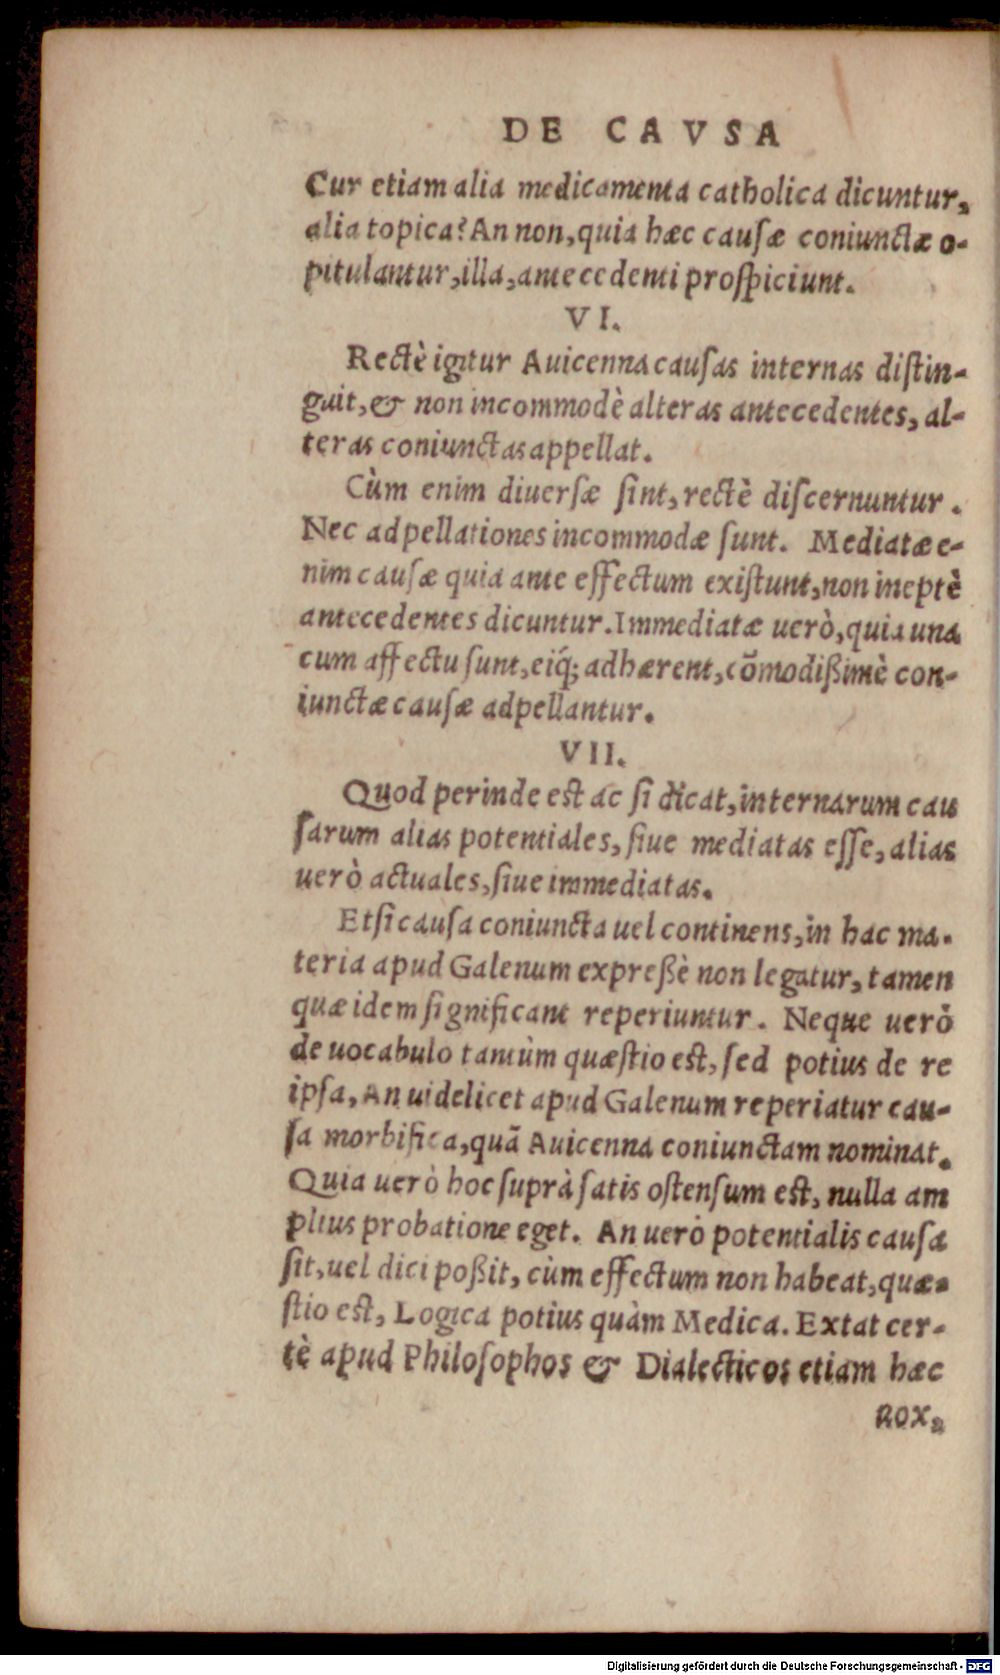 DE CAVSA
Cur etiam alia medicamenta catholica dicuntur,
alia topica? An non, quia hæc causæ coniunctæ o-
pitulantur, illa, antecedenti prospiciunt.
VI.
Rectè igitur Auicenna causas internas distin-
guit, & non incommodè alteras antecedentes, al-
teras coniunctas appellat.
Cùm enim diuersæ sint, rectè discernuntur.
Nec adpellationes incommodæ sunt. Mediatæ e-
nim causæ quia ante effectum existunt, non ineptè
antecedentes dicuntur. Immediatæ uerò, quia una
cum affectu sunt, eiq́; adhærent, cõmodißimè con-
iunctæ causæ adpellantur.
VII.
Quod perinde est ac si dicat, internarum cau
sarum alias potentiales, siue mediatas esse, alias
uerò actuales, siue immediatas.
Etsi causa coniuncta uel continens, in hac ma-
teria apud Galenum expreßè non legatur, tamen
quæ idem significant reperiuntur. Neque uerò
de uocabulo tantùm quæstio est, sed potius de re
ipsa, An uidelicet apud Galenum reperiatur cau-
sa morbifica, quã Auicenna coniunctam nominat.
Quia uerò hoc suprà satis ostensum est, nulla am
plius probatione eget. An uerò potentialis causa
sit, uel dici poßit, cùm effectum non habeat, quæ-
stio est, Logica potius quàm Medica. Extat cer-
tè apud Philosophos & Dialecticos etiam hæc
uox,
Digitalisierung gefördert durch die Deutsche Forschungsgemeinschaft - DFG